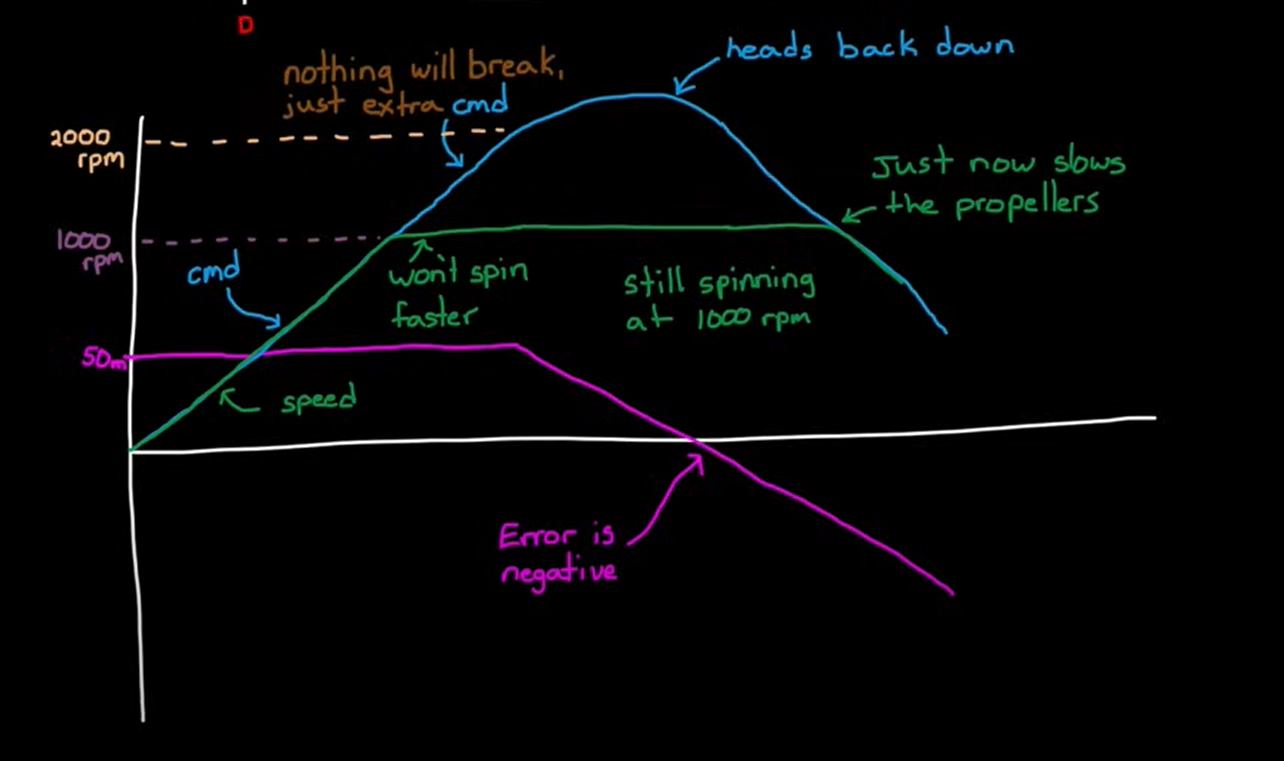 D
heads back down
nothing will break,
just extra cmd
2000
rpm
Just now slows
the propellers
1000
rpm
cmd
won't spin
faster
still spinning
at 1000 rpm
50m
speed
Error is
negative